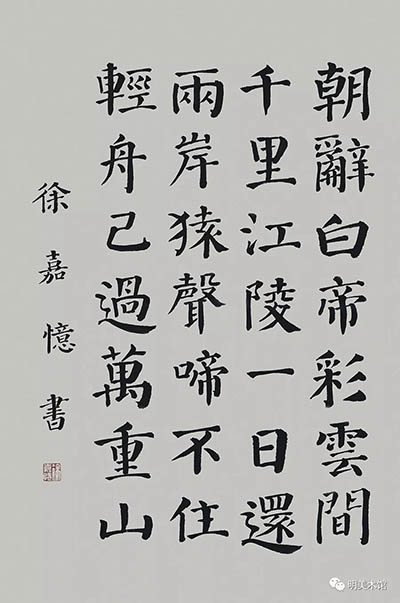 朝辭白帝彩雲間
千里江陵一日還
兩岸猿聲啼不住
輕舟已過萬重山
徐嘉憶書
明美术馆